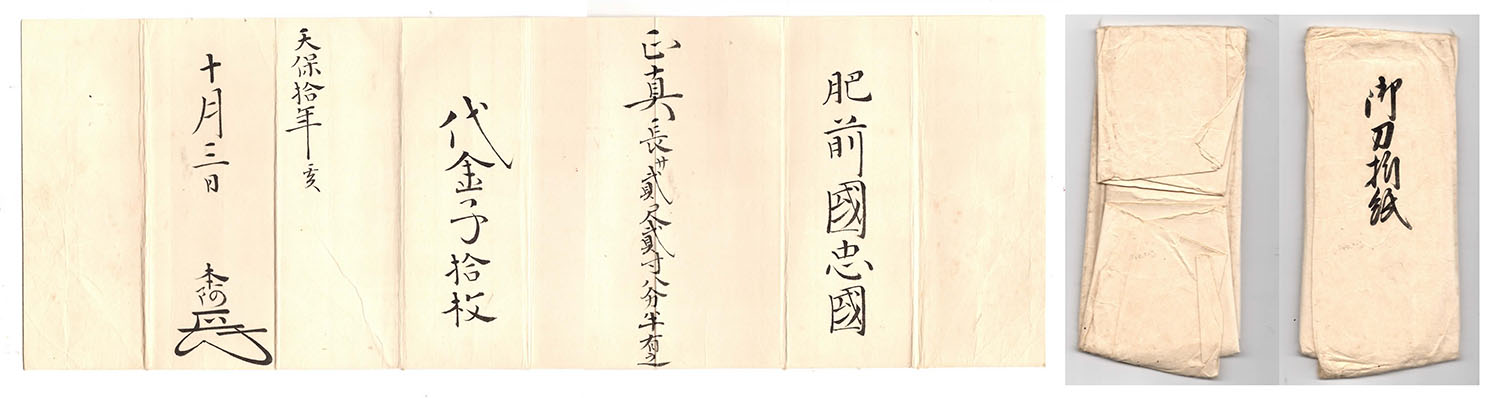 肥前國忠國
正真長サ貳尺貳寸八分半有之
代金子拾枚
天保拾年亥
十月三日
本阿
御刀折紙